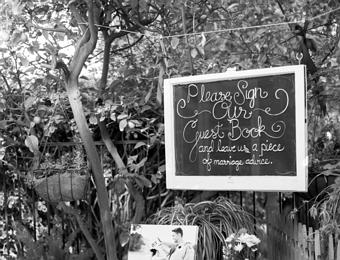 Please Sign
Our
Guest Book
and leave us a piece
of marriage advice.